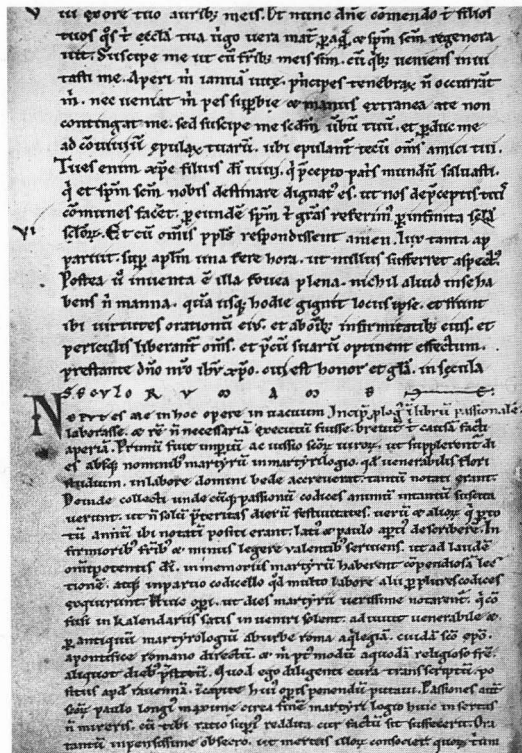 ui exore tuo aurib; meis. Et nunc dn̄e comendo t̄ filios
tuos q̄s t̄ eccl̄a tua uirgo uera mat̄ p aquā & sp̄m sc̄m regenera
uit. Suscipe me ut cū fr̄ib; meis sim. cū q̄b; ueniens inui
tasti me. Aperi m̄ ianuā uite. p̄ncipes tenebraꝝ n̄ occurrāt
m̄. nec ueniat m̄ pes supbie & manus extranea a te non
contingat me. sed suscipe me scd̄m uerbū tuū. et pduc me
ad cōuiuiū epulaꝝ tuarū. ubi epulant tecū om̄s amici tui.
Tu es enim xp̄e filius d̄i uiui. q̄ p̄cepto pat̄s mundū saluasti.
q̄ et sp̄m sc̄m nobis destinare dignat es. ut nos de p̄ceptis tuis
cōmunes facēt. p eundē sp̄m t̄ gr̄as referim p infinita sc̄la
sc̄loꝝ. Et cū om̄is ppl̄s respondissent amen. lux tanta ap
VI
paruit. sup apl̄m una fere hora. ut nullus sufferret aspectū.
Postea ū inuenta ē illa fouea plena. nichil aliud in se ha
bens n̄ manna. quā usq; hodie gignit locus ipse. et fiunt
ibi uirtutes orationū eius. et ab om̄ib; infirmitatib; eius. et
periculis liberant om̄s. et p̄cū suarū optinent effectum.
prestante dn̄o nr̄o ihū xp̄o. cui est honor et gl̄a. in secula
seculoRum AmEn
Ne me in hoc opere in uacuum Incip plog̃ ī librū passionale.
laborasse. & rē n̄ necessariā executū fuisse. breuit̄ t̄ causā facti
aperiā. Primū fuit imperiū ac iussio sc̄oꝝ uiroꝝ. ut supplerent di
es absq; nominib; martyrū in martyrilogio. qd̄ uenerabilis flori
studium. in labore domini bede accreuerat. tantū notati erant.
Deinde collecti undecūq; passionū codices animū in tantū suscita
uerunt. ut n̄ solū p̄teritas dierū festiuitates. uerū & alioꝝ q̄ p to
tū annū ibi notati positi erant. lati & paulo apti describerē. In
firmiorib; fr̄ib; & minus legere ualentib; seruiens. ut ad laudē
om̄ipotentis d̄i. in memoriis martyrū haberent cōpendiosā lec
tionē. atq; in paruo codicello qd̄ multo labore alii p plures codices
exquirunt. Huic opi. ut dies martyrū uerissime notarent. q̄ cō
fusi in kalendariis satis inueniri solent. adiuuit uenerabile &
pantiquū martyrologiū ab urbe roma aq̄legiā. cuidā sc̄o ep̄o.
a pontifice romano directū. & m̄ p mod̄ū a quodā religioso fr̄e.
aliquot dieb; p̄stitū. Quod ego diligenti cura transscriptū. po
situs apd̄ rauennā. ī capite hui opis ponendū putaui. Passiones aut̄
sc̄oꝝ paulo long maxime circa finē martyrilogio huic insertas
n̄ mireris. cū tibi ratio sup reddita cur factū sit suffecerit. Ora
tantū inpensissime obsecro. ut meritis illoꝝ consocier quoꝝ tām